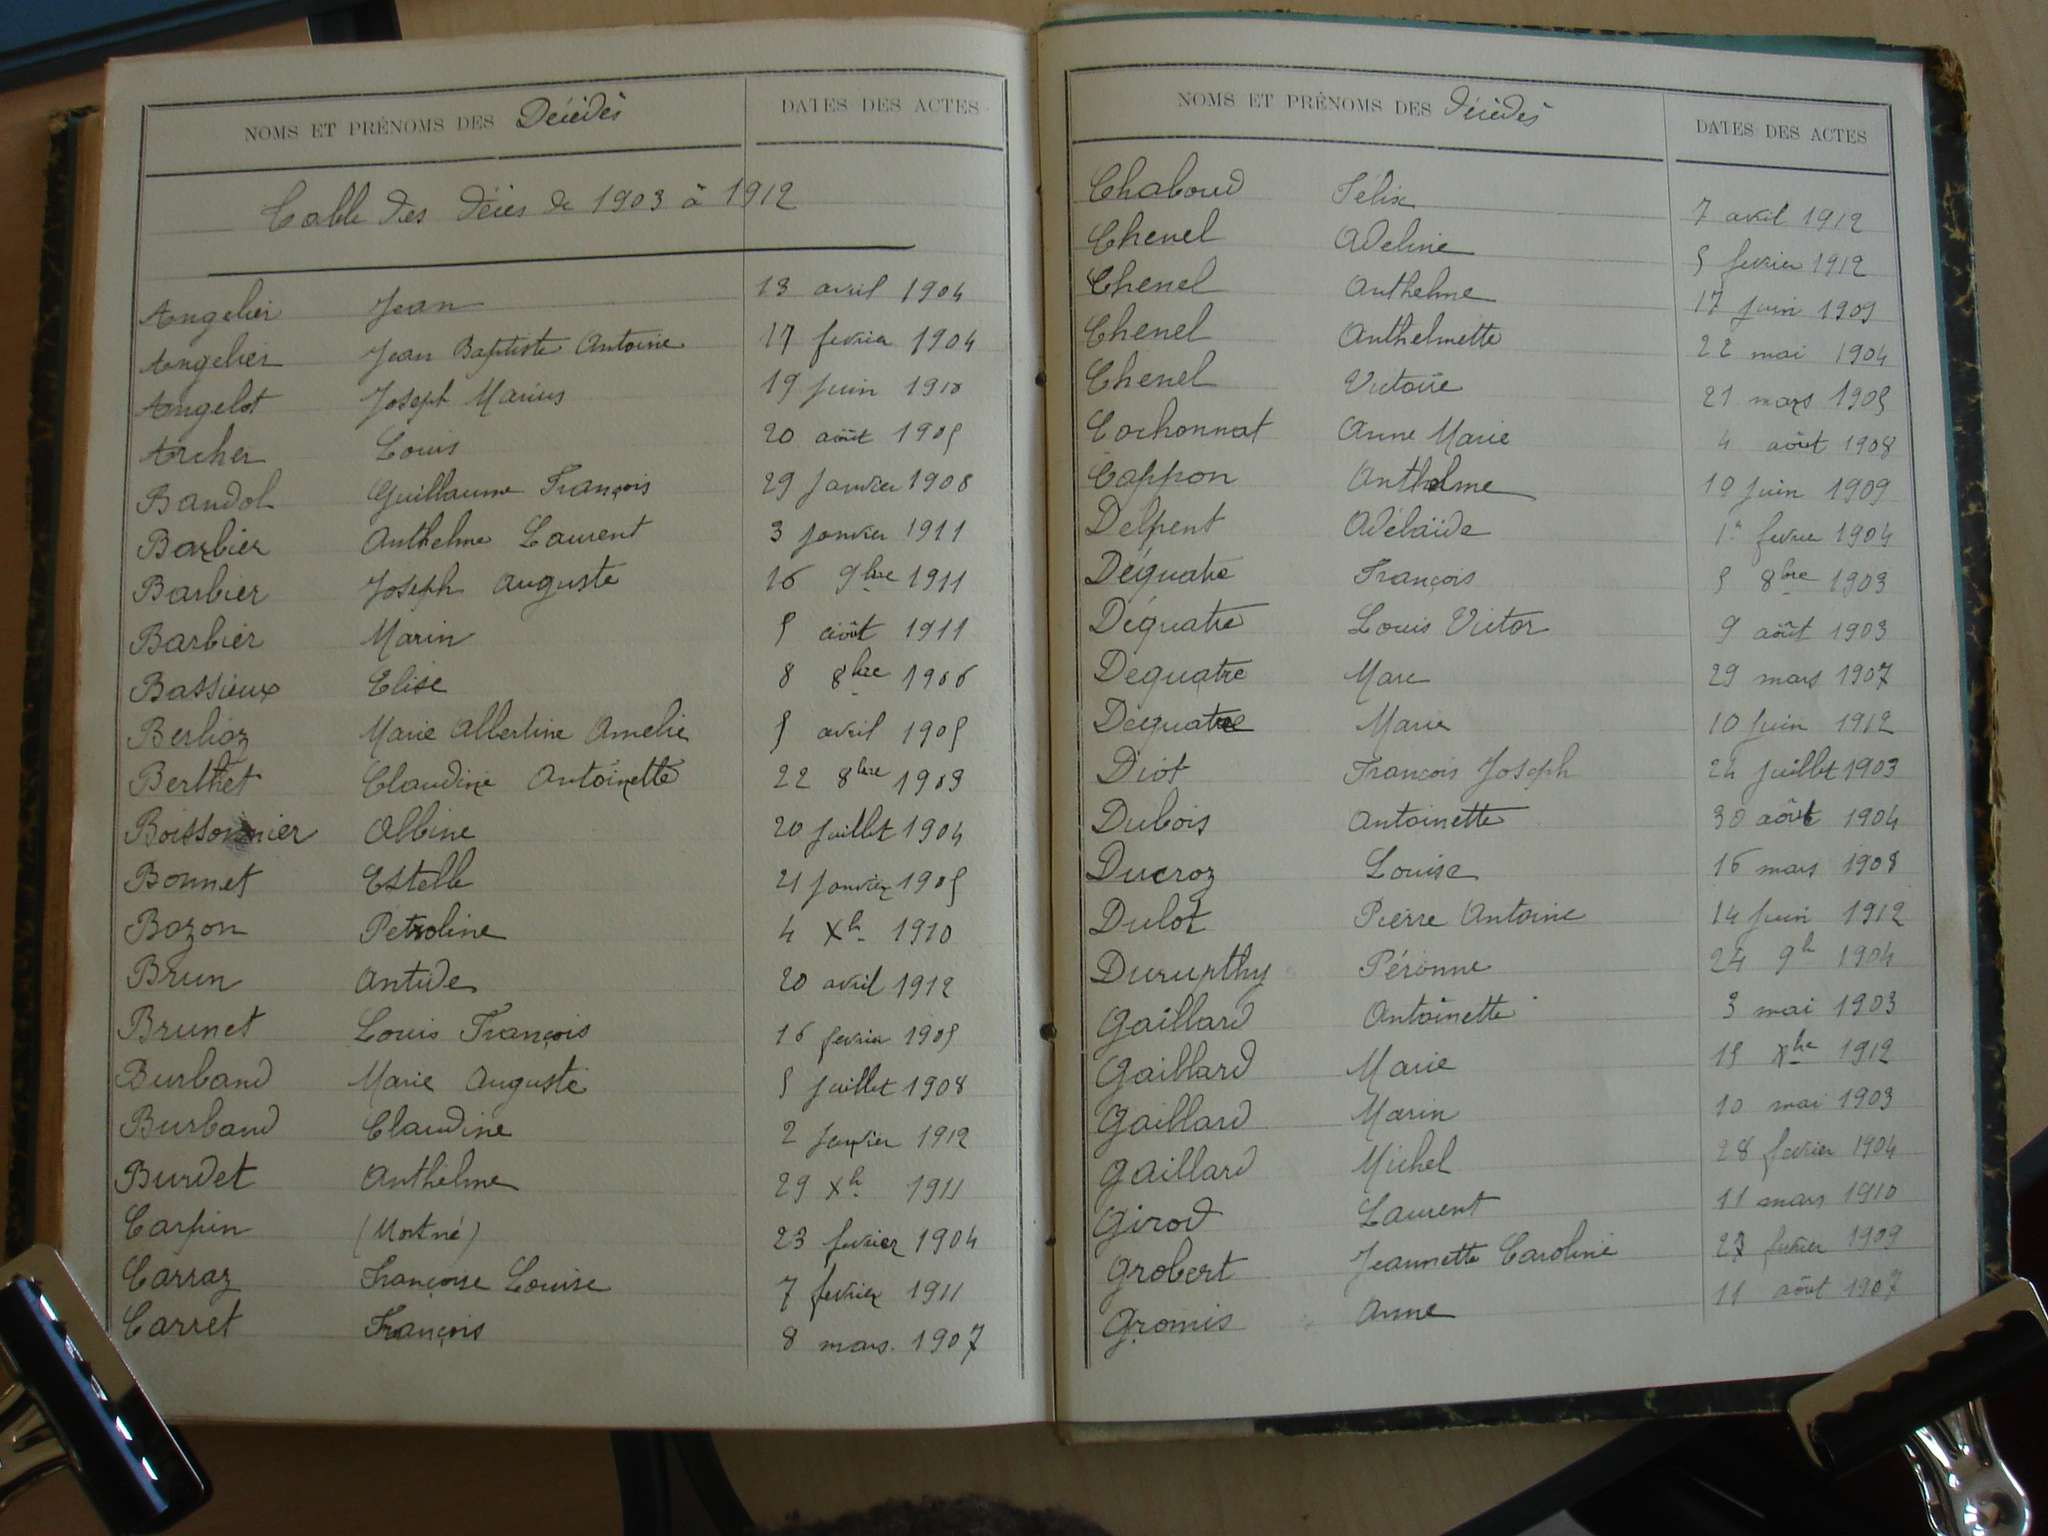 NOMS ET PRÉNOMS DES Décédés DATES DES ACTES
Table des décès de 1903 à 1912
Angelier Jean 13 avril 1904
Angelier Jean Baptiste Antoine 17 fevrier 1904
Angelot Joseph Marius 19 Juin 1910
Archer Louis 20 août 1905
Bandol Guillaume François 29 Janvier 1908
Barbier Anthelme Laurent 3 Janvier 1911
Barbier Joseph Auguste 16 9bre 1911
Barbier Marin 5 août 1911
Bassieux Elise 8 8bre 1906
Berlioz Marie Albertine Amelie 5 avril 1905
Berthet Claudine Antoinette 22 8bre 1903
Boissonnier Albine 20 Juillet 1904
Bonnet Estelle 21 Janvier 1905
Bozon Petroline 4 Xb 1910
Brun Antide 20 avril 1912
Brunet Louis François 16 fevrier 1905
Burband Marie Auguste 5 Juillet 1908
Burband Claudine 2 Janvier 1912
Burdet Anthelme 29 Xb 1911
Carpin (Mort né) 23 fevrier 1904
Carraz Françoise Louise 7 fevrier 1911
Carret François 8 mars 1907
NOMS ET PRÉNOMS DES Décédés DATES DES ACTES
Chaboud Félix 7 avril 1912
Chenel Adeline 5 fevrier 1912
Chenel Anthelme 17 Juin 1905
Chenel Anthelmette 22 mai 1904
Chenel Victoire 21 mars 1905
Cochonnat Anne Marie 4 août 1908
Coppon Anthelme 10 Juin 1909
Delpent Adélaïde 1er fevrier 1904
Déquatre François 5 8bre 1903
Déquatre Louis Victor 9 août 1903
Dequatre Marc 29 mars 1907
Dequatre Marie 10 Juin 1912
Diot François Joseph 24 Juillet 1903
Dubois Antoinette 30 août 1904
Ducroz Louise 16 mars 1908
Dulot Pierre Antoine 14 Juin 1912
Durupthy Péronne 24 9b 1904
Gaillard Antoinette 3 mai 1903
Gaillard Marie 15 Xbre 1912
Gaillard Marin 10 mai 1903
Gaillard Michel 28 fevrier 1904
Girod Laurent 11 mars 1910
Grobert Jeannette Caroline 27 fevrier 1909
Gromis Anne 11 août 1907